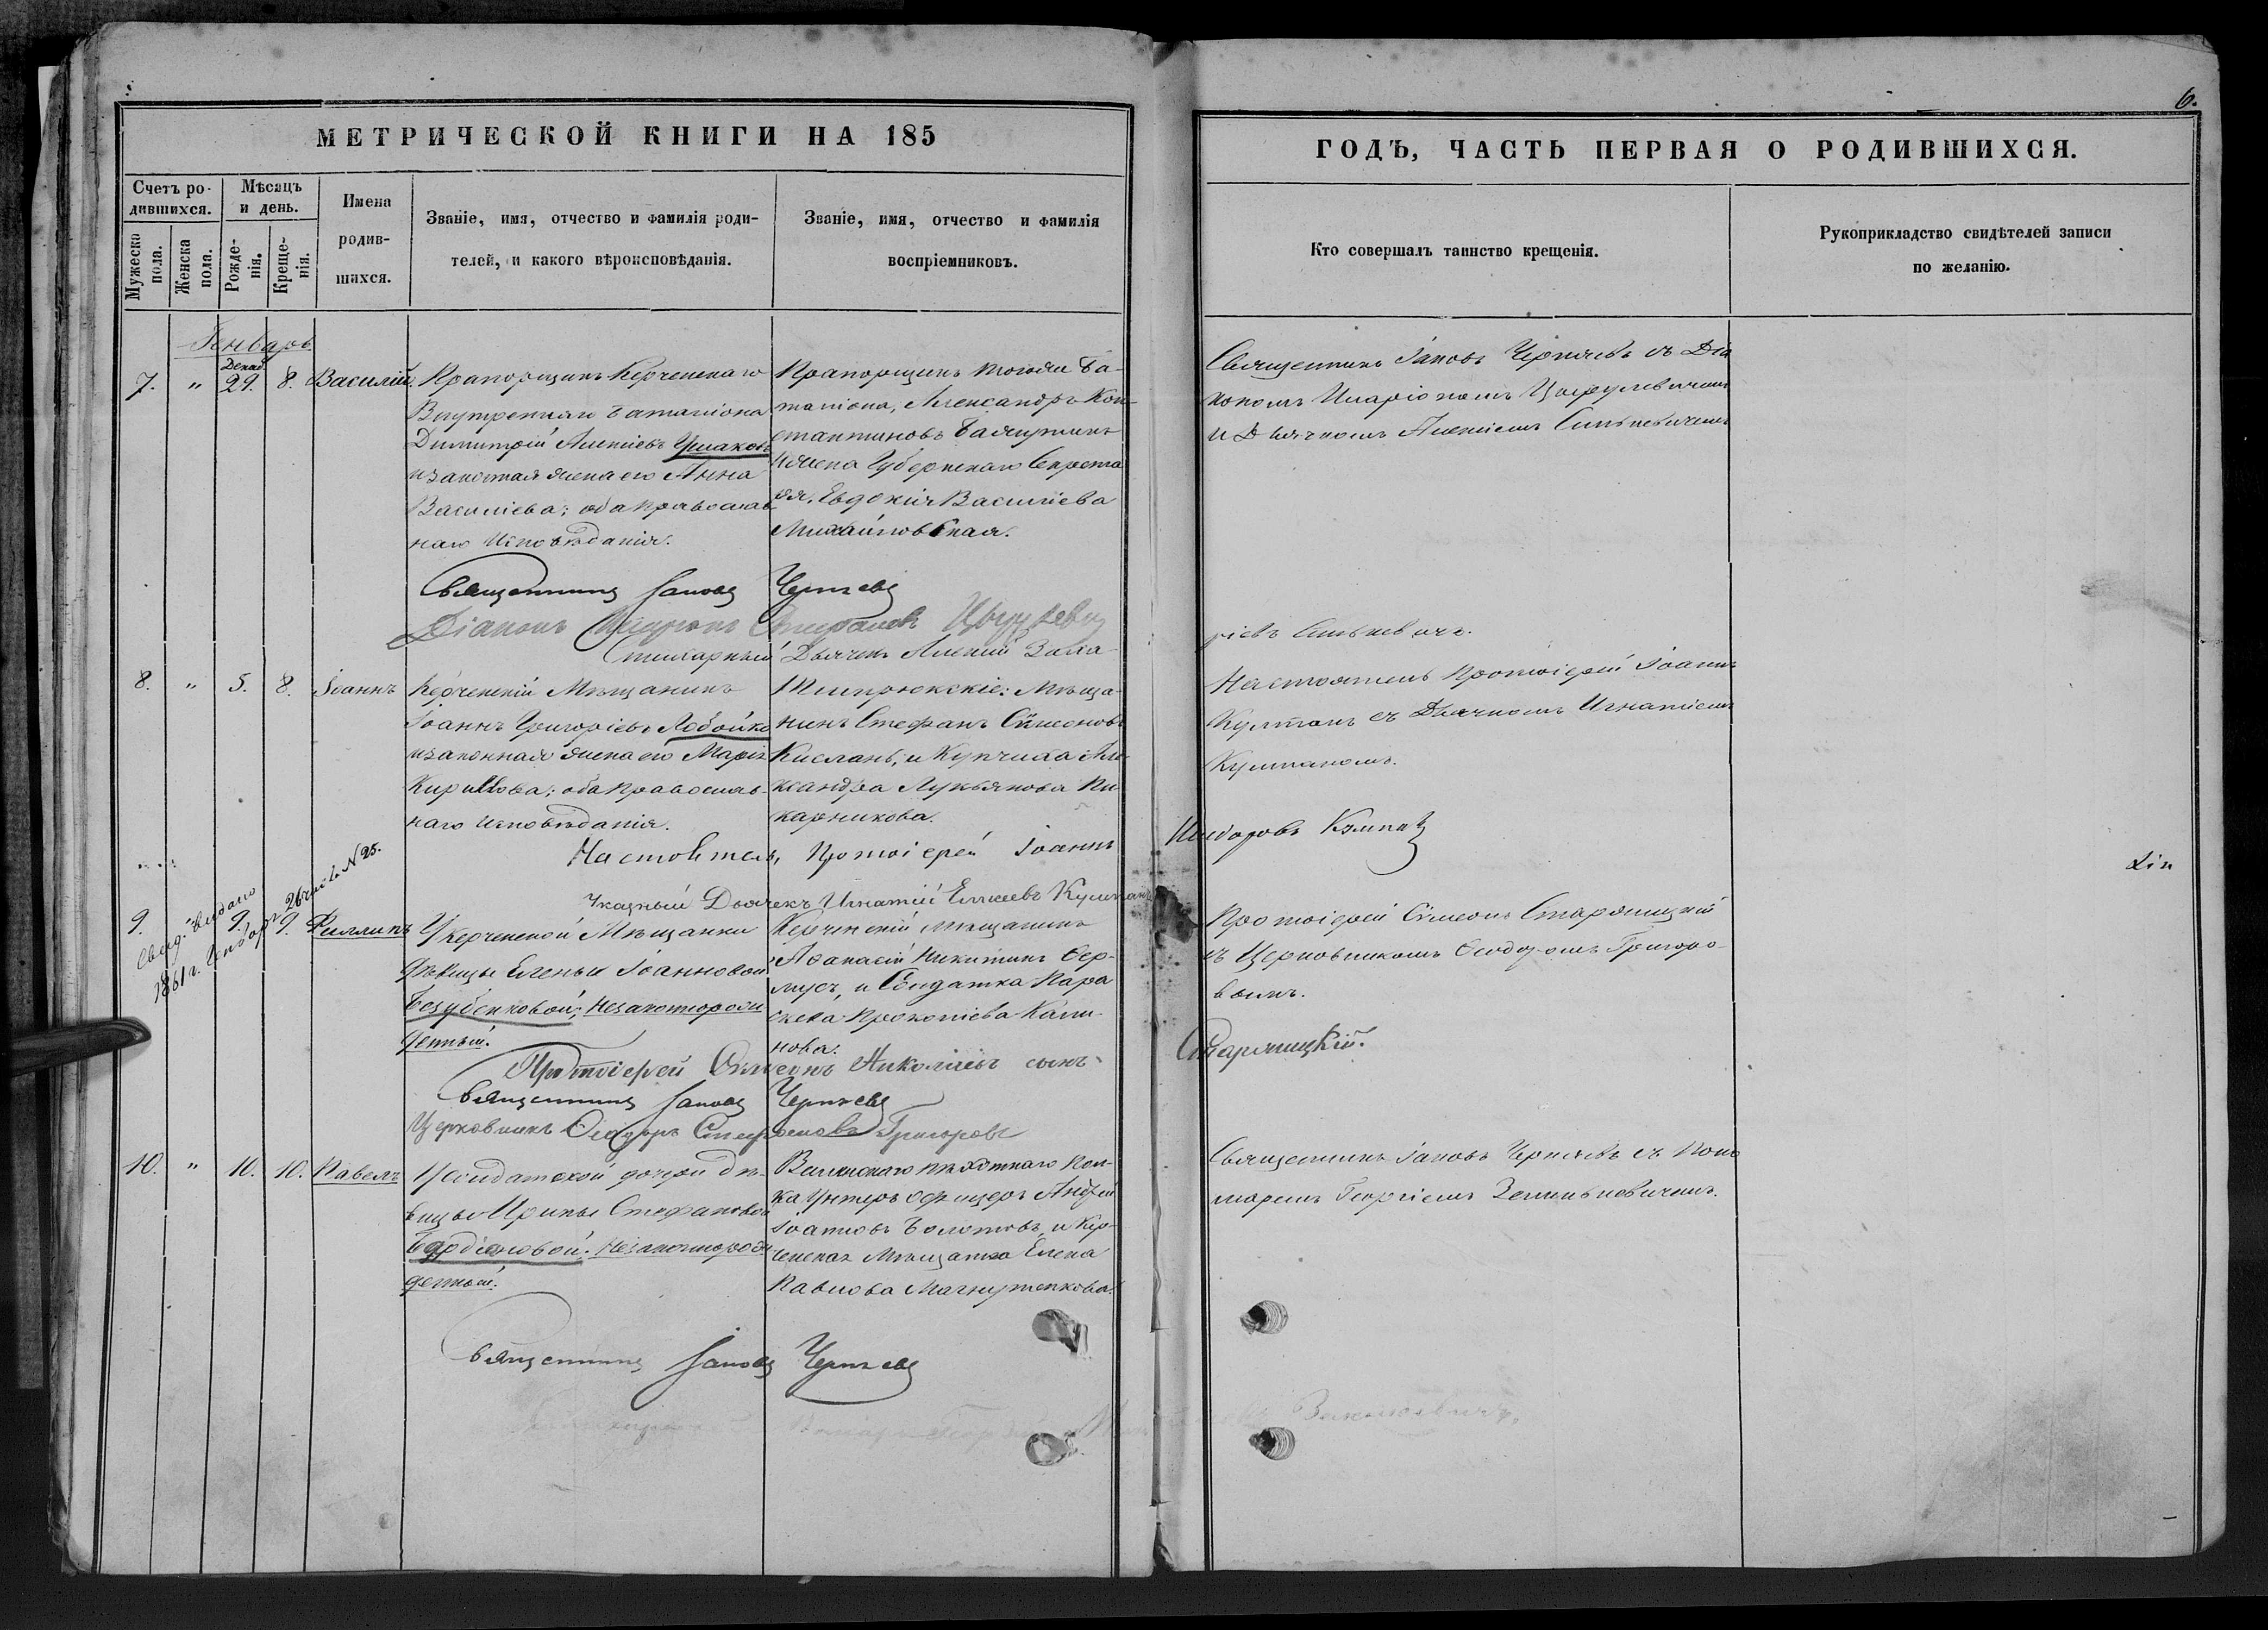 6.
МЕТРИЧЕСКОЙ КНИГИ НА 185
ГОДЪ, ЧАСТЬ ПЕРВАЯ О РОДИВШИХСЯ.
Счетъ ро-
дившихся.
Мужеска
пола.
Женска
пола.
Мѣсяцъ
и день.
Рожде-
нія.
Креще-
нія.
Имена
родив-
шихся.
Званіе, имя, отчество и фамилія роди-
телей, и какого вѣроисповѣданія.
Званіе, имя, отчество и фамилія
воспріемниковъ.
Кто совершалъ таинство крещенія.
Рукоприкладство свидѣтелей записи
по желанію.
Генварь
7.
"
Декаб.
29.
8.
Василій
Прапорщикъ Керченскаго
Внутренняго баталіона
Димитрій Алексіевъ Ушаковъ
и законная жена его Анна
Василіева; оба православ
наго исповѣданія.
Прапорщикъ тогоже Ба-
таліона, Александръ Кон-
стантиновъ
и жена Губернскаго Секрета
ря, Евдокія Василіева
Михайловская.
Священникъ Іаковъ Черняевъ съ Діа
кономъ Иларіономъ
и Дьячкомъ Алексіемъ Синькевичемъ
Священникъ Іаковъ Черняевъ
Діаконъ
Стихарный Дьячекъ Алексій Заха-
ріевъ Синькевичъ.
8.
"
5.
8.
Іоаннъ
Керченскій Мѣщанинъ
Іоаннъ Григоріевъ Лебойко
и законная жена его Марія
Кириллова; оба православ-
наго исповѣданія.
Темрюкскіе: Мѣща-
нинъ Стефанъ Сѵмеоновъ
Кислань, и Купчиха Але-
ксандра Лукьянова Пи-
карникова.
Настоятель Протоіерей Іоаннъ
Култанъ съ Дьячкомъ Игнатіемъ
Култаномъ.
Настоятель, Протоіерей Іоаннъ
Указный Дьячекъ Игнатій Елисеевъ
9.
"
9.
9.
Филлипъ
Свид. выдано
1861 г. Генваря 26 числа № 25.
У Керченской Мѣщанки
дѣвицы Елены Іоанновой
Безубенковой; незаконнорож
денный.
Керченскій мѣщанинъ
Аѳанасій Никитинъ
и Солдатка Пара
скева Прокопіева Кали-
нова.
Протоіерей Сѵмеонъ Старямицкій
съ Церковникомъ Ѳеодоромъ Григоро-
вымъ.
Протоіерей Сѵмеонъ Николаевъ сынъ
Старямицкій.
Священникъ Іаковъ Черняевъ
Церковникъ Ѳеодоръ Стефановъ Григоровъ
10.
"
10.
10.
Павелъ
У Солдатской дочери дѣ-
вицы Ирины Стефановой
незаконнорож
денный.
пѣхотнаго пол-
ка Унтеръ офицеръ Андрей
Іоанновъ Болотовъ и Кер-
ченская Мѣщанка Елена
Павлова
Священникъ Іаковъ Черняевъ съ Поно
маремъ Георгіемъ
Священникъ Іаковъ Черняевъ